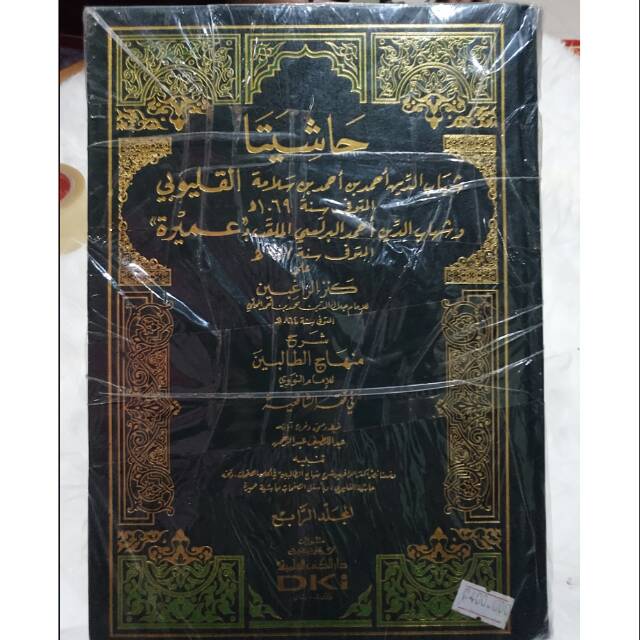 حاشيتا
شهاب الدين أحمد بن أحمد بن سلامة القليوبي
المتوفى سنة ١٠٦٩ هـ
وشهاب الدين أحمد البرلسي الملقب بـ"عميرة"
المتوفى سنة هـ
على
كنز الراغبين
للإمام جلال الدين محمد بن أحمد المحلي
المتوفى سنة ٨٦٤ هـ
شرح
منهاج الطالبين
للإمام النووي
في فقه الشافعية
ضبطه وصححه وخرج آياته
عبد اللطيف عبد الرحمن
تنبيه
المجلد الرابع
دار الكتب العلمية
DKi